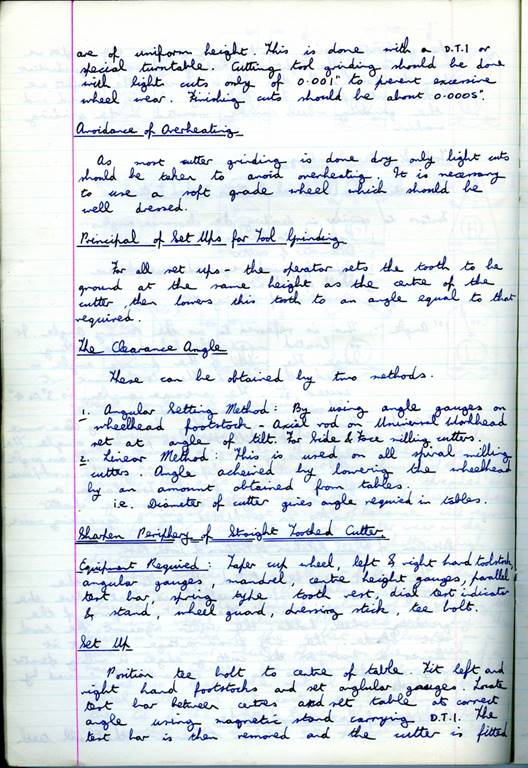 are of uniform height. This is done with a D.T.I or
special turntable. Cutting tool grinding should be done
with light cuts only of 0.001" to prevent excessive
wheel wear. Finishing cuts should be about 0.0005".
Avoidance of Overheating
As most cutter grinding is done dry only light cuts
should be taken to avoid overheating. It is necessary
to use a soft grade wheel which should be
well dressed.
Principal of Set Ups for Tool Grinding
For all set ups - the operator sets the tooth to be
ground at the same height as the centre of the
cutter, then lowers this tooth to an angle equal to that
required.
The Clearance Angle
These can be obtained by two methods.
1. Angular Setting Method: By using angle gauges on
wheelhead footstock - Axial rod on Universal Workhead
set at angle of tilt. For Side & Face milling cutters.
2. Linear Method: This is used on all spiral milling
cutters. Angle acheived by lowering the wheelhead
by an amount obtained from tables.
i.e. Diameter of cutter gives angle required in tables.
Sharpen Periphery of Straight Toothed Cutter.
Equipment Required: Taper cup wheel, left & right hand footstocks,
angular gauges, mandrel, centre height gauges, parallel
test bar, spring type tooth rest, dial test indicator
& stand, wheel guard, dressing stick, tee bolt.
Set Up
Position tee bolt to centre of table. Fit left and
right hand footstocks and set anglular gauges. Locate
test bar between centres and set table at correct
angle using magnetic stand carrying D.T.I. The
test bar is then removed and the cutter is fitted